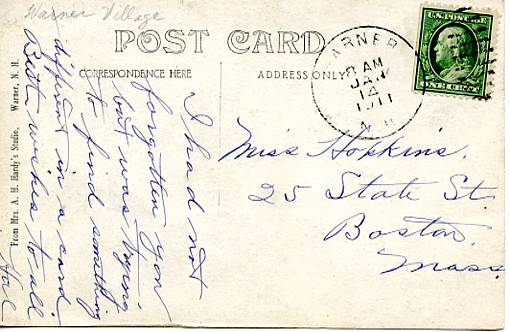 Warner Village
POST CARD
CORRESPONDENCE HERE
ADDRESS ONLY
WARNER
8 AM
JAN
14
1911
N.H.
U.S. POSTAGE
ONE CENT
From Mrs. A. H. Hardy's Studio, Warner, N. H.
I had not
forgotten you
but was trying
to find something
different in a card
Best wishes to all.
Hal
Miss Hopkins.
25 State St.
Boston.
Mass.